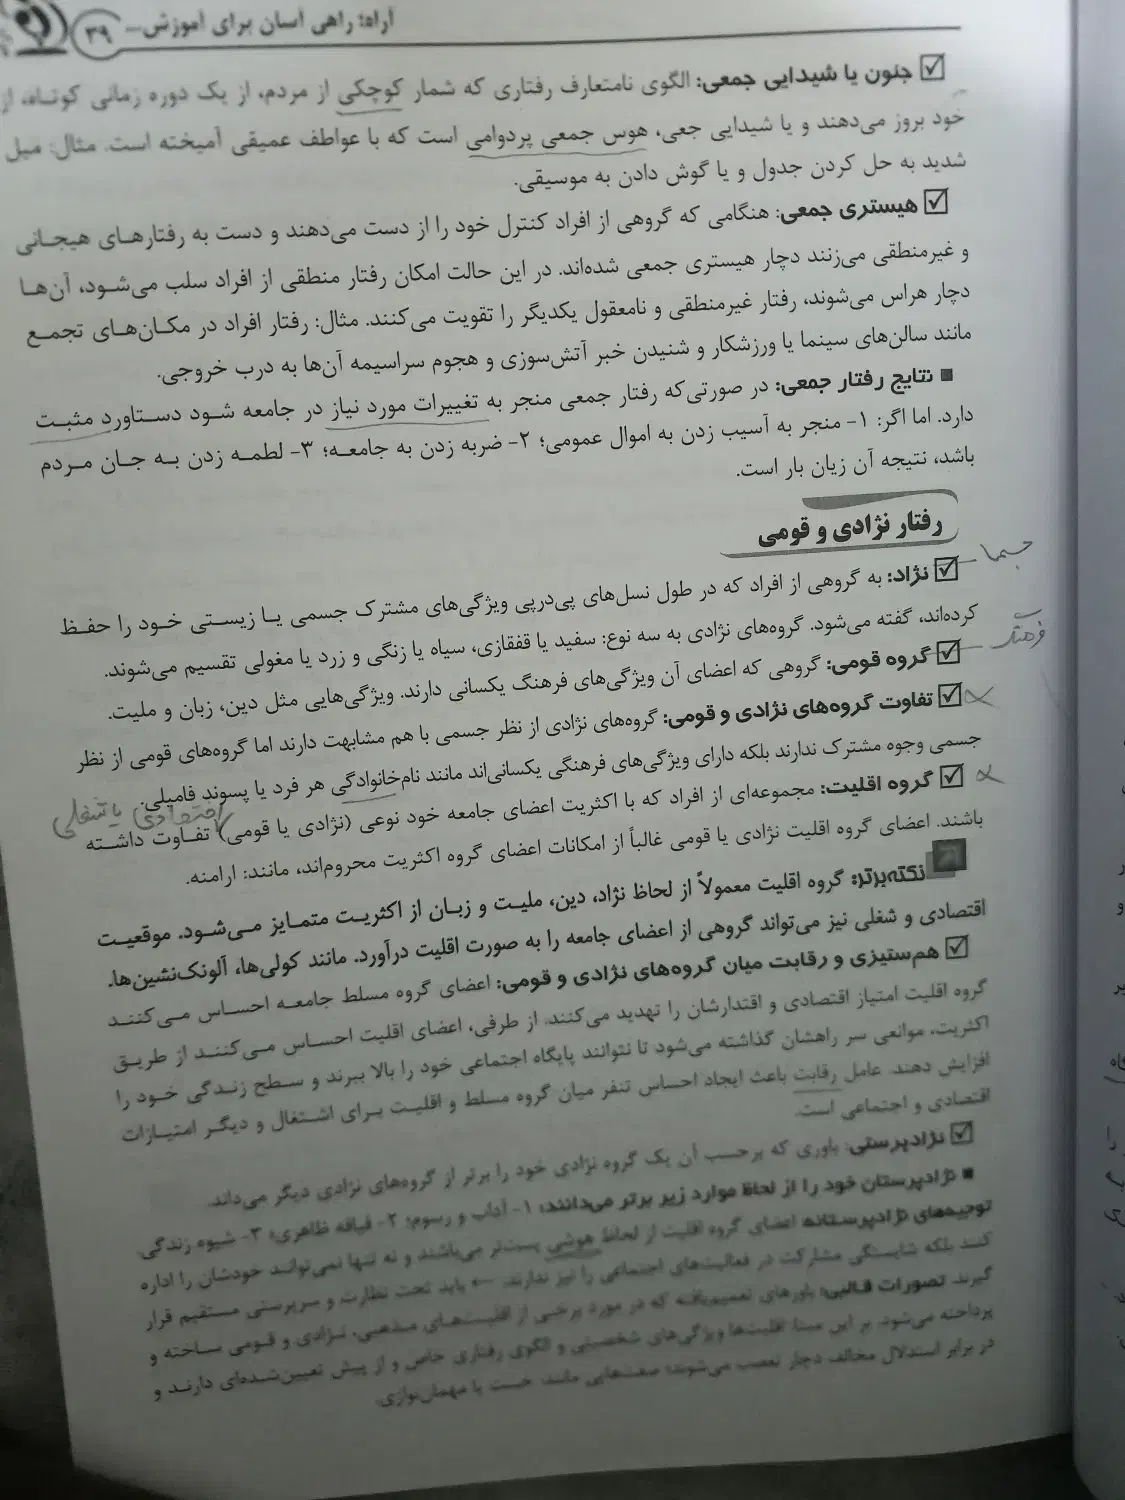 آراه؛ راهی آسان برای آموزش... ۳۹
جنون یا شیدایی جمعی: الگوی نامتعارف رفتاری که شمار کوچکی از مردم، از یک دوره زمانی کوتاه، از
خود بروز می‌دهند و یا شیدایی جعی، هوس جمعی پردوامی است که با عواطف عمیقی آمیخته است. مثال: میل
شدید به حل کردن جدول و یا گوش دادن به موسیقی.
هیستری جمعی: هنگامی که گروهی از افراد کنترل خود را از دست می‌دهند و دست به رفتارهای هیجانی
و غیرمنطقی می‌زنند دچار هیستری جمعی شده‌اند. در این حالت امکان رفتار منطقی از افراد سلب می‌شود، آن‌ها
دچار هراس می‌شوند، رفتار غیرمنطقی و نامعقول یکدیگر را تقویت می‌کنند. مثال: رفتار افراد در مکان‌های تجمع
مانند سالن‌های سینما یا ورزشکار و شنیدن خبر آتش‌سوزی و هجوم سراسیمه آن‌ها به درب خروجی.
■ نتایج رفتار جمعی: در صورتی‌که رفتار جمعی منجر به تغییرات مورد نیاز در جامعه شود دستاورد مثبت
دارد. اما اگر: ۱- منجر به آسیب زدن به اموال عمومی؛ ۲- ضربه زدن به جامعه؛ ۳- لطمه زدن به جان مردم
باشد، نتیجه آن زیان بار است.
رفتار نژادی و قومی
نژاد: به گروهی از افراد که در طول نسل‌های پی‌درپی ویژگی‌های مشترک جسمی یا زیستی خود را حفظ
کرده‌اند، گفته می‌شود. گروه‌های نژادی به سه نوع: سفید یا قفقازی، سیاه یا زنگی و زرد یا مغولی تقسیم می‌شوند.
فرهنگ
گروه قومی: گروهی که اعضای آن ویژگی‌های فرهنگ یکسانی دارند. ویژگی‌هایی مثل دین، زبان و ملیت.
تفاوت گروه‌های نژادی و قومی: گروه‌های نژادی از نظر جسمی با هم مشابهت دارند اما گروه‌های قومی از نظر
جسمی وجوه مشترک ندارند بلکه دارای ویژگی‌های فرهنگی یکسانی‌اند مانند نام‌خانوادگی هر فرد یا پسوند فامیلی.
اقتصادی یا شغلی
گروه اقلیت: مجموعه‌ای از افراد که با اکثریت اعضای جامعه خود نوعی (نژادی یا قومی) تفاوت داشته
باشند. اعضای گروه اقلیت نژادی یا قومی غالباً از امکانات اعضای گروه اکثریت محروم‌اند، مانند: ارامنه.
نکته‌برتر: گروه اقلیت معمولاً از لحاظ نژاد، دین، ملیت و زبان از اکثریت متمایز می‌شود. موقعیت
اقتصادی و شغلی نیز می‌تواند گروهی از اعضای جامعه را به صورت اقلیت درآورد. مانند کولی‌ها، آلونک‌نشین‌ها.
هم‌ستیزی و رقابت میان گروه‌های نژادی و قومی: اعضای گروه مسلط جامعه احساس می‌کنند
گروه اقلیت امتیاز اقتصادی و اقتدارشان را تهدید می‌کنند. از طرفی، اعضای اقلیت احساس می‌کنند از طریق
اکثریت، موانعی سر راهشان گذاشته می‌شود تا نتوانند پایگاه اجتماعی خود را بالا ببرند و سطح زندگی خود را
افزایش دهند. عامل رقابت باعث ایجاد احساس تنفر میان گروه مسلط و اقلیت برای اشتغال و دیگر امتیازات
اقتصادی و اجتماعی است.
نژادپرستی: باوری که برحسب آن یک گروه نژادی خود را برتر از گروه‌های نژادی دیگر می‌داند.
■ نژادپرستان خود را از لحاظ موارد زیر برتر می‌دانند: ۱- آداب و رسوم؛ ۲- قیافه ظاهری؛ ۳- شیوه زندگی.
توجیه‌های نژادپرستانه اعضای گروه اقلیت از لحاظ هوشی پست‌تر می‌باشند و نه تنها نمی‌توانند خودشان را اداره
کنند بلکه شایستگی مشارکت در فعالیت‌های اجتماعی را نیز ندارند. ← باید تحت نظارت و سرپرستی مستقیم قرار
گیرند. تصورات قالبی: باورهای تعمیم‌یافته که در مورد برخی از اقلیت‌های مذهبی، نژادی و قومی ساخته و
پرداخته می‌شود. بر این مبنا اقلیت‌ها ویژگی‌های شخصیتی و الگوی رفتاری خاص و از پیش تعیین‌شده‌ای دارند و
در برابر استدلال مخالف دچار تعصب می‌شوند؛ صفت‌هایی مانند: خست یا مهمان‌نوازی.